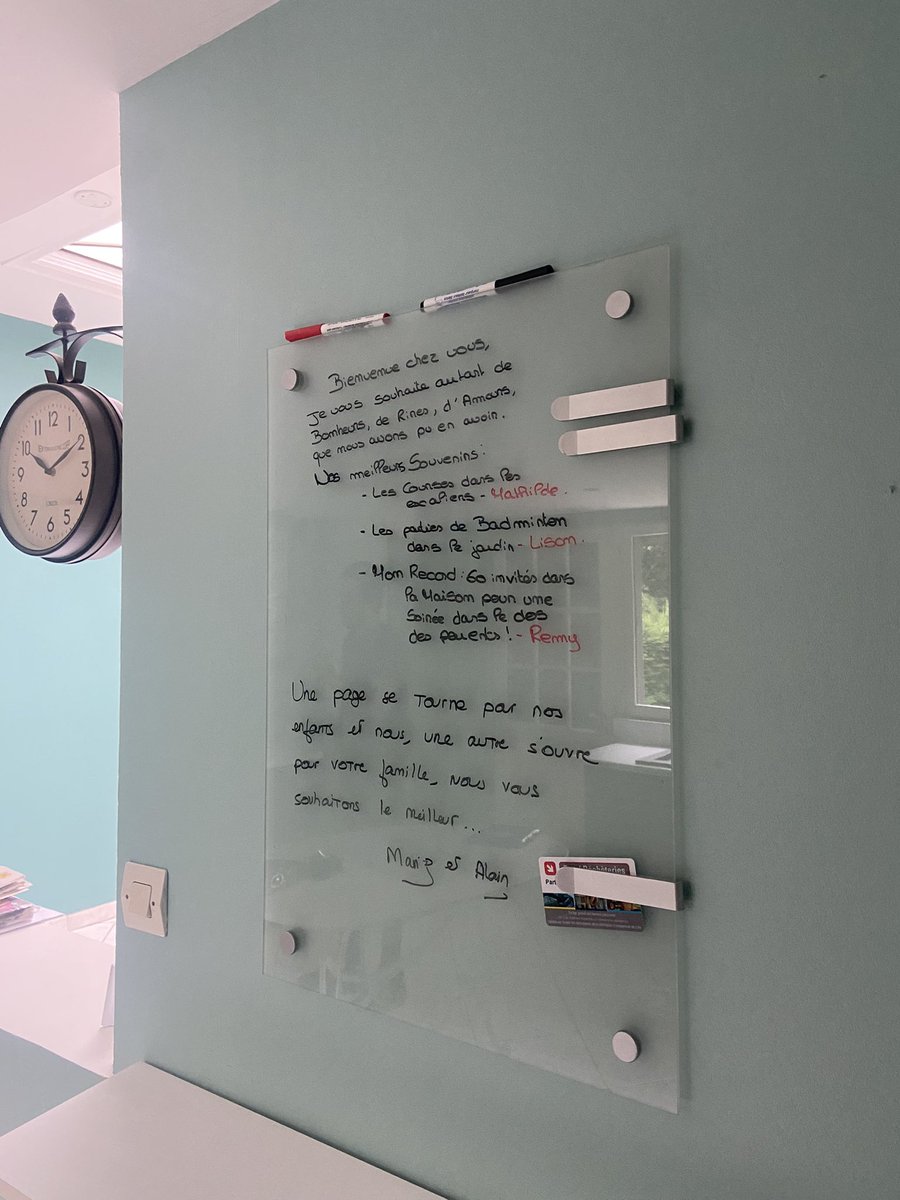 Bienvenue chez vous,
Je vous souhaite autant de
Bonheurs, de Rires, d'Amours,
que nous avons pu en avoir.
Nos meilleurs Souvenirs :
- Les Courses dans les
escaliers - Mathilde.
- Les parties de Badminton
dans le jardin - Lison.
- Mon Record : 60 invités dans
la Maison pour une
Soirée dans le dos
des parents ! - Remy
Une page se tourne par nos
enfants et nous, une autre s'ouvre
pour votre famille, nous vous
souhaitons le meilleur...
Marie et Alain
12
1
2
3
4
5
6
7
8
9
10
11
LONDON
Déchèteries